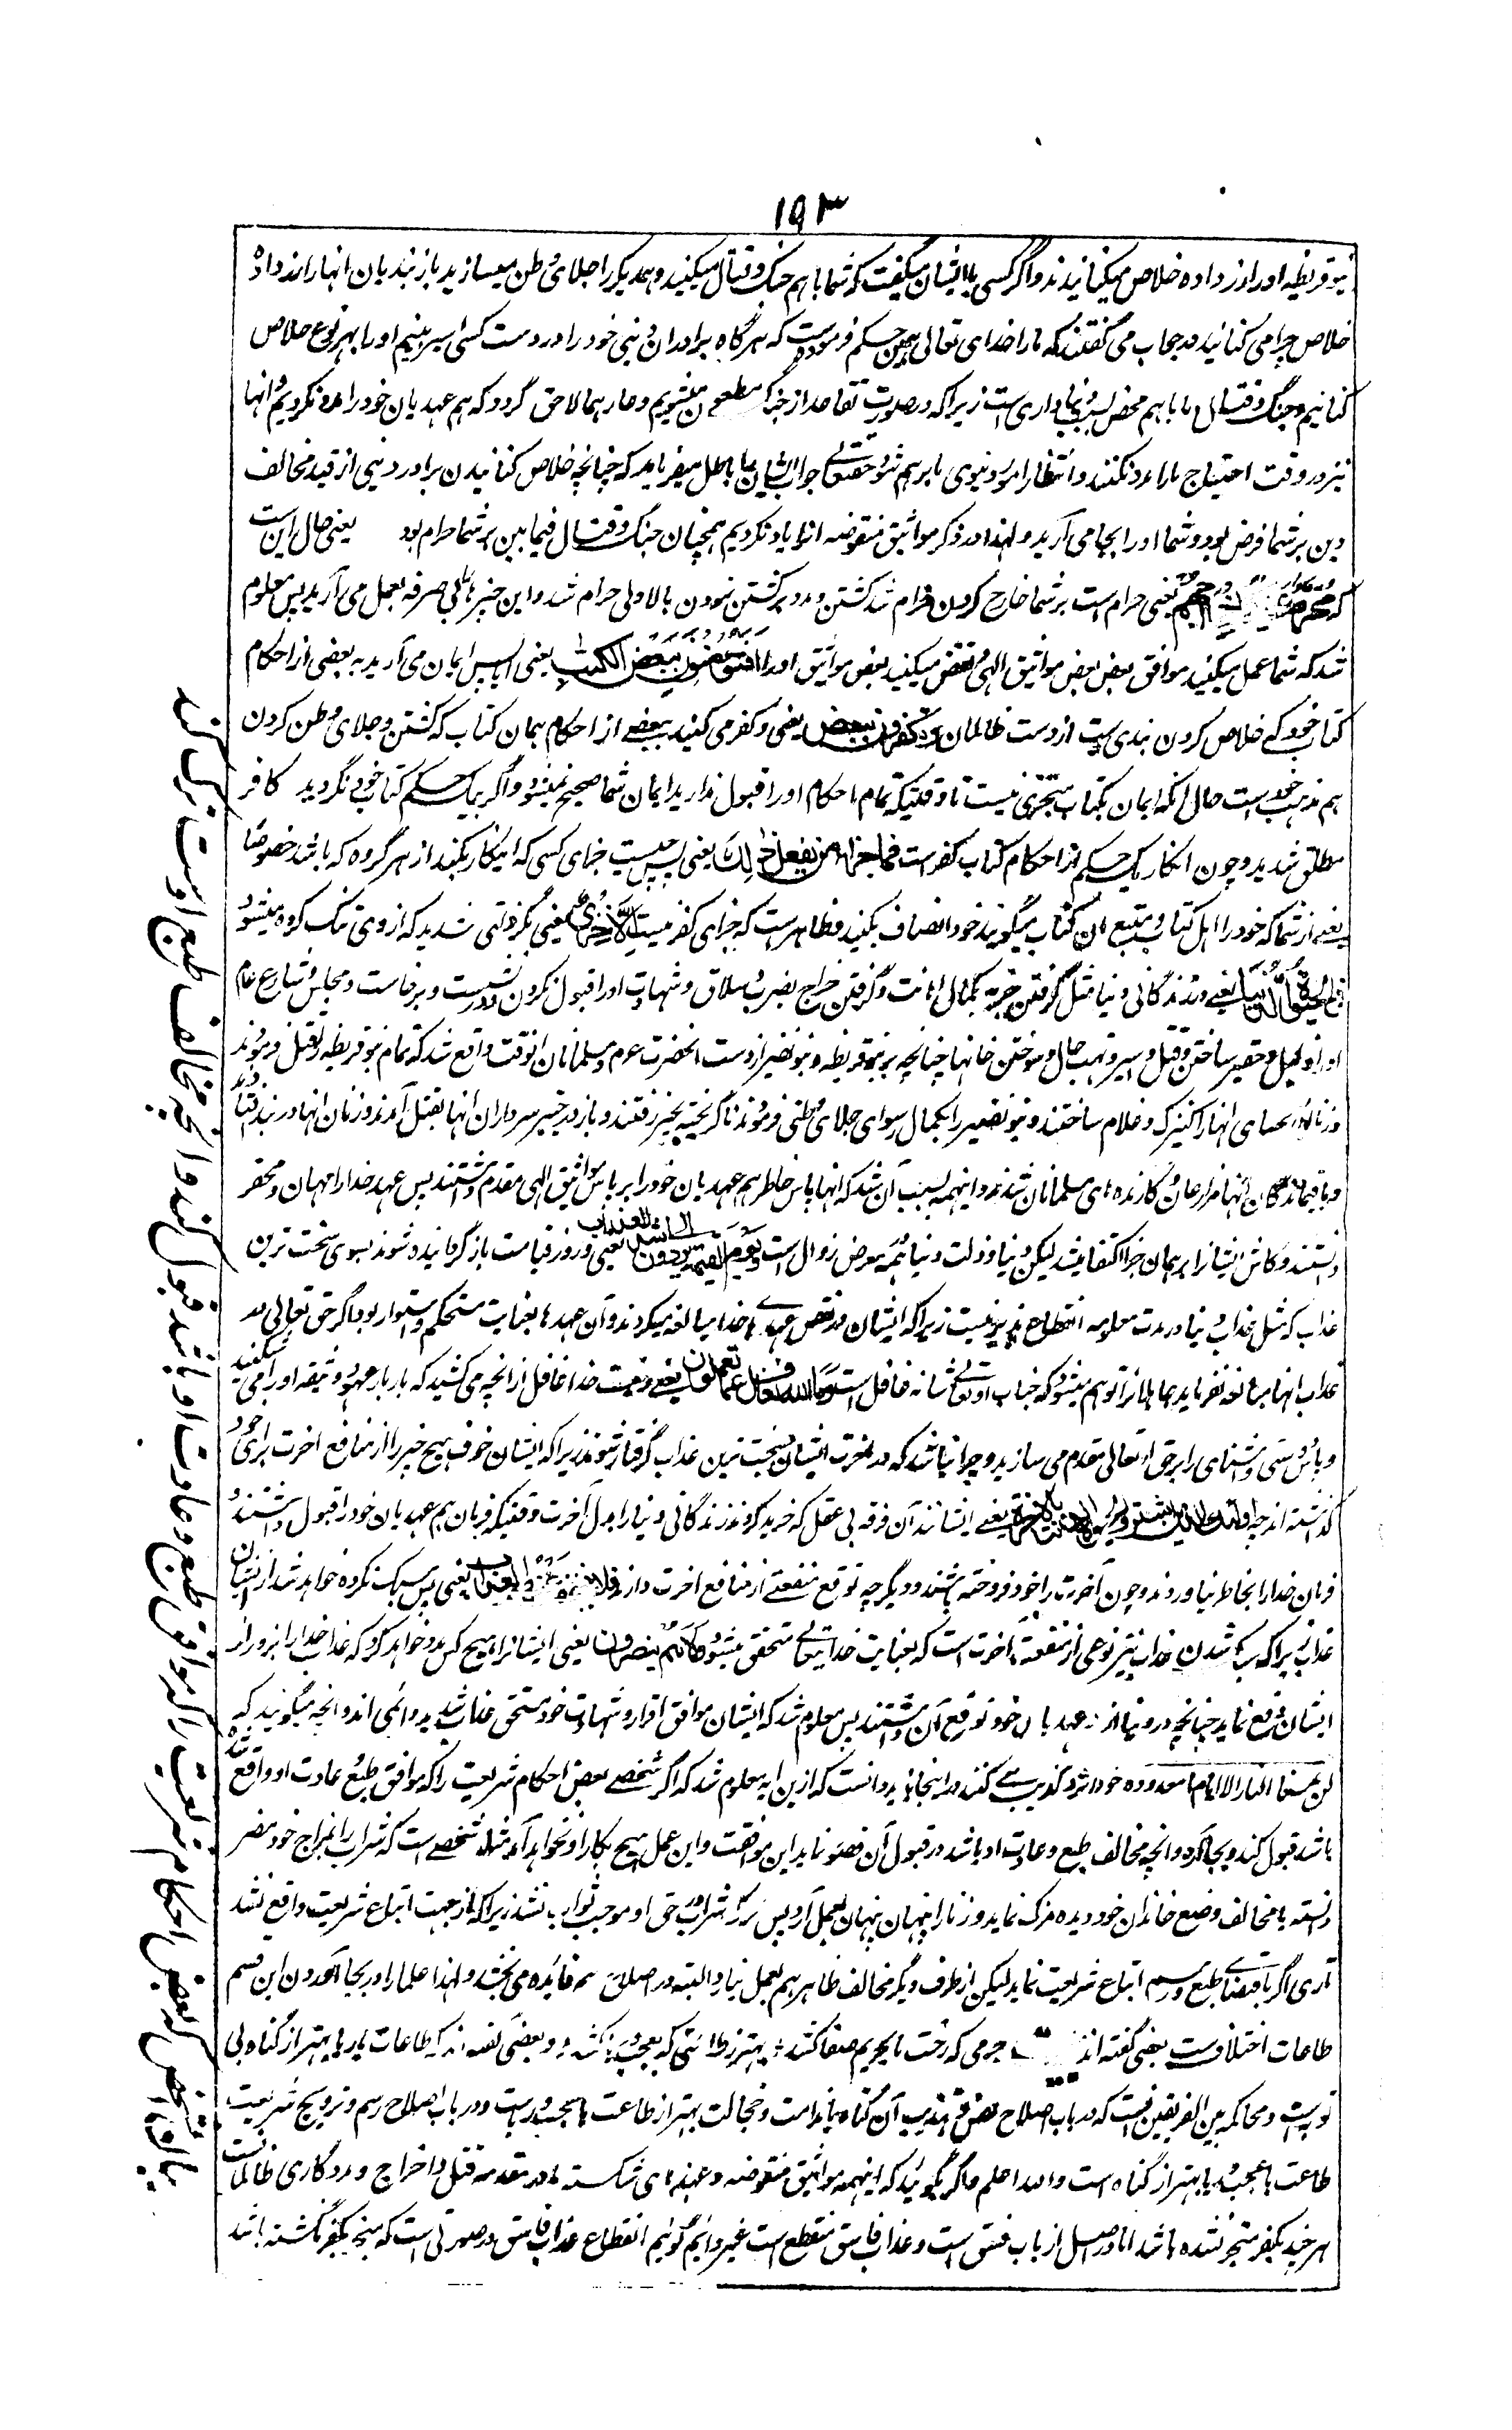 ۱۹۳
بنو قریظه او را زر داده خلاص میکنانیدند و اگر کسی با ایشان میگفت که شما با هم جنگ و قتال میکنید و همدیگر را جلای وطن میسازید باز بندیان انها را زر داده
خلاص چرا می کنانید در جواب می گفتند که ما را خدای تعالی همین حکم فرموده است که هرگاه برادران دینی خود را در دست کسی اسیر بینیم او را بهر نوع خلاص
کنانیم و جنگ و قتال ما با هم محض بسبب دنیاداری است زیرا که در صورت تقاعد از جنگ مطعون میشویم و عار بما لاحق گردد که هم عهدیان خود را مدد نکردیم و انها
نیز در وقت احتیاج ما را مدد نکنند و انتظام امور دنیوی ما برهم شود حق تعالی جواب ایشان باطل میفرماید که چنانچه خلاص کنانیدن برادر دینی از قید مخالف
دین بر شما فرض بود و شما او را بجا می آرید و لهذا در ذکر مواثیق منقوضه انرا یاد نکردیم همچنان جنگ و قتال فیما بین بر شما حرام بود یعنی حال این است
که محرم علیکم اخراجهم یعنی حرام است بر شما خارج کردن و هرگاه اخراج حرام شد کشتن و مدد بر کشتن نمودن بالاولی حرام شد و این چیزها بی صرفه بعمل می آرید پس معلوم
شد که شما عمل میکنید موافق بعض مواثیق الهی و نقض میکنید بعض مواثیق او را افتؤمنون ببعض الکتاب یعنی ایا پس ایمان می آرید به بعضی از احکام
کتاب خود که خلاص کردن بندی است از دست ظالمان و تکفرون ببعض یعنی و کفر می کنید ببعضی از احکام همان کتاب که کشتن و جلای وطن کردن
هم مذهب خود است حال انکه ایمان بکتاب متجزی نیست تا وقتیکه تمام احکام او را قبول ندارید ایمان شما صحیح نمیشود و اگر بیک حکم کتاب خود نگروید کافر
مطلق شدید و چون انکار یک حکم از احکام کتاب کفر است فما جزاء من یفعل ذلك یعنی پس چیست جزای کسی که اینکار بکند از هر گروه که باشد خصوصًا
منکم یعنی از شما که خود را اهل کتاب و متبع ان کتاب میگویند خود انصاف بکنید و ظاهر است که جزای کفر نیست الا خزی یعنی مگر ذلتی شدید که از وی ننگ کرده میشود
فی الحیوة الدنیا یعنی در زندگانی دنیا مثل گرفتن جزیه بکمال اهانت و گرفتن خراج بضرب شلاق و شهادت او را قبول نکردن و در نشست و برخاست و مجلس و شارع عام
او را ذلیل و حقیر ساختن و قتل و اسیر و نهب مال و سوختن خانها چنانچه بر بنو قریظه و بنو نضیر از دست انحضرت صلعم و مسلمانان انوقت واقع شد که تمام بنو قریظه را قتل فرمودند
و زنان و اطفال انها را کنیزک و غلام ساختند و بنو نضیر را بکمال رسوائی جلای وطن فرمودند تا گریخته بخیبر رفتند و باز در خیبر سرداران انها بقتل آمدند و زنان انها در بند افتادند
و باقیماندگان انها مزارعان و کارنده های مسلمانان شدند و اینهمه بسبب آن شد که انها پاس خاطر هم عهدیان خود را بر پاس مواثیق الهی مقدم داشتند پس عهد خدا را مهان و محقر
دانستند و کاش ایشان را بر همان جزا اکتفا میشد لیکن دنیا و ذلت دنیا همه بمعرض زوال است و یوم القیمة یردون الی اشد العذاب یعنی و روز قیامت باز گردانیده شوند بسوی سخت ترین
عذاب که مثل عذاب دنیا در مدت معلومه انقطاع پذیر نیست زیرا که ایشان در نقض عهدهای خدا مبالغه میکردند و آن عهدها بغایت مستحکم و استوار بود و اگر حق تعالی در
عذاب انها مبالغه نفرماید جاهلان را توهم میشود که جناب او تعالی شانه غافل است و ما الله بغافل عما تعملون یعنی و نیست خدا غافل از انچه می کنید که بار بار عهد و وثیقه او را می شکنید
و پاس دوستی و آشنائی را بر حق او تعالی مقدم می سازید و چرا نباشد که در آخرت ایشان بسخت ترین عذاب گرفتار شوند زیرا که ایشان خود هیچ چیز را از منافع اخرت برای خود
نگذاشته اند چه اولئك الذین اشتروا الحیوة الدنیا بالاخرة یعنی ایشانند آن فرقه بی عقل که خرید کردند زندگانی دنیا را بدل آخرت وقتیکه فرمان هم عهدیان خود را قبول داشتند و
فرمان خدا را بخاطر نیاوردند و چون آخرت را خود فروخته باشند دیگر چه توقع منفعتی از منافع اخرت دارند فلا یخفف عنهم العذاب یعنی پس سبک نکرده خواهد شد از ایشان
عذاب زیرا که سبک شدن عذاب نیز نوعی از منفعت آخرت است که بعنایت خدایتعالی متحقق میشود و لا هم ینصرون یعنی و نه ایشانرا هیچ کس مدد خواهد کرد که عذاب خدا را بزور از
ایشان دفع نماید چنانچه در دنیا از هم عهدیان خود توقع آن داشتند پس معلوم شد که ایشان موافق اقرار و شهادت خود مستحق عذاب شدید دائمی اند و انچه میگویند که
لن تمسنا النار الا ایاما معدودة خود را خود تکذیب می کنند در اینجا باید دانست که ازین آیه معلوم شد که اگر شخصی بعض احکام شریعت را که موافق طبع و عادت او واقع شده
باشد قبول کند و بجا آرد و انچه مخالف طبع و عادت او باشد در قبول آن قصور نماید این موافقت و این عمل هیچ بکار او نخواهد آمد مثلا شخصی است که شراب را بمزاج خود مضر
دانسته یا مخالف وضع خاندان خود دیده ترک نماید و زنا را پنهان پنهان بعمل آرد پس ترک شراب در حق او موجب ثواب نباشد زیرا که از جهت اتباع شریعت واقع نشد
آری اگر باقتضای طبع و رسم اتباع شریعت نماید لیکن از طرف دیگر مخالف ظاهر هم بعمل نیارد البته در اصلاح رسم فائده می بخشد و لهذا علما را در بجا آوردن این قسم
طاعات اختلاف است بعضی گفته اند جرمی که رخت ما بحریم صفا کشد بهتر ز طاعتی که بعجب و ریا کشد و بعضی گفته اند که طاعات با ریا بهتر از گناه بی
توبه است و محاکمه بین الفریقین آنست که در باب اصلاح نفس و تهذیب آن گناه با ندامت و خجالت بهتر از طاعت با عجب و ریاست و در باب اصلاح رسم و ترویج شریعت
طاعت با عجب و ریا بهتر از گناه است والله اعلم و اگر گویند که اینهمه مواثیق منقوضه و عهدهای شکسته در مقدمه قتل و اخراج و مددگاری ظالمانست
هر چند بکفر منجر شده باشد اما در اصل از باب فسق است و عذاب فاسق منقطع است غیر دائم گوئیم انقطاع عذاب فاسق در صورتی است که منجر بکفر نگشته باشد
بیان آنکه شخص که بعض احکام شریعت را که موافق طبع و عادت او باشد قبول کند و انچه مخالف طبع اوست ترک کند